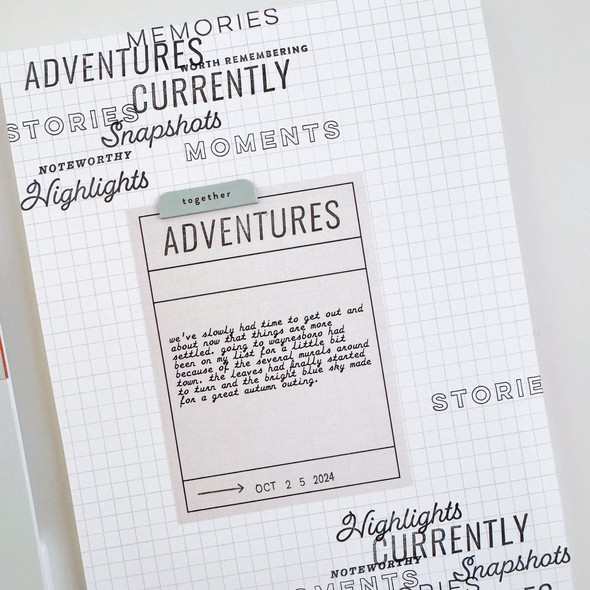 MEMORIES
ADVENTURES
WORTH REMEMBERING
CURRENTLY
STORIES
Snapshots
MOMENTS
NOTEWORTHY
Highlights
together
ADVENTURES
we've slowly had time to get out and
about now that things are more
settled. going to waynesboro had
been on my list for a little bit
because of the several murals around
town. the leaves had finally started
to turn and the bright blue sky made
for a great autumn outing.
OCT 2 5 2024
STORIE
Highlights
CURRENTLY
NOTEWORTHY
Snapshots
MOMENTS
ORIES